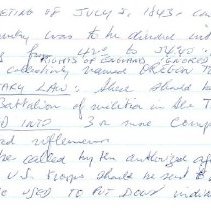 MEETING OF JULY 5, 1843 - 
was to be divided into
f 42° to 54.40 -
RIGHTS OF ENGLAND IGNORED
collectively named OREGON T
TARY LAW: there should be
Battalion of militia in the T
D INTO 3 or more Comp
ed riflemen
be called by the authorized off
U.S. troops should be sent
USED TO PUT DOWN indian